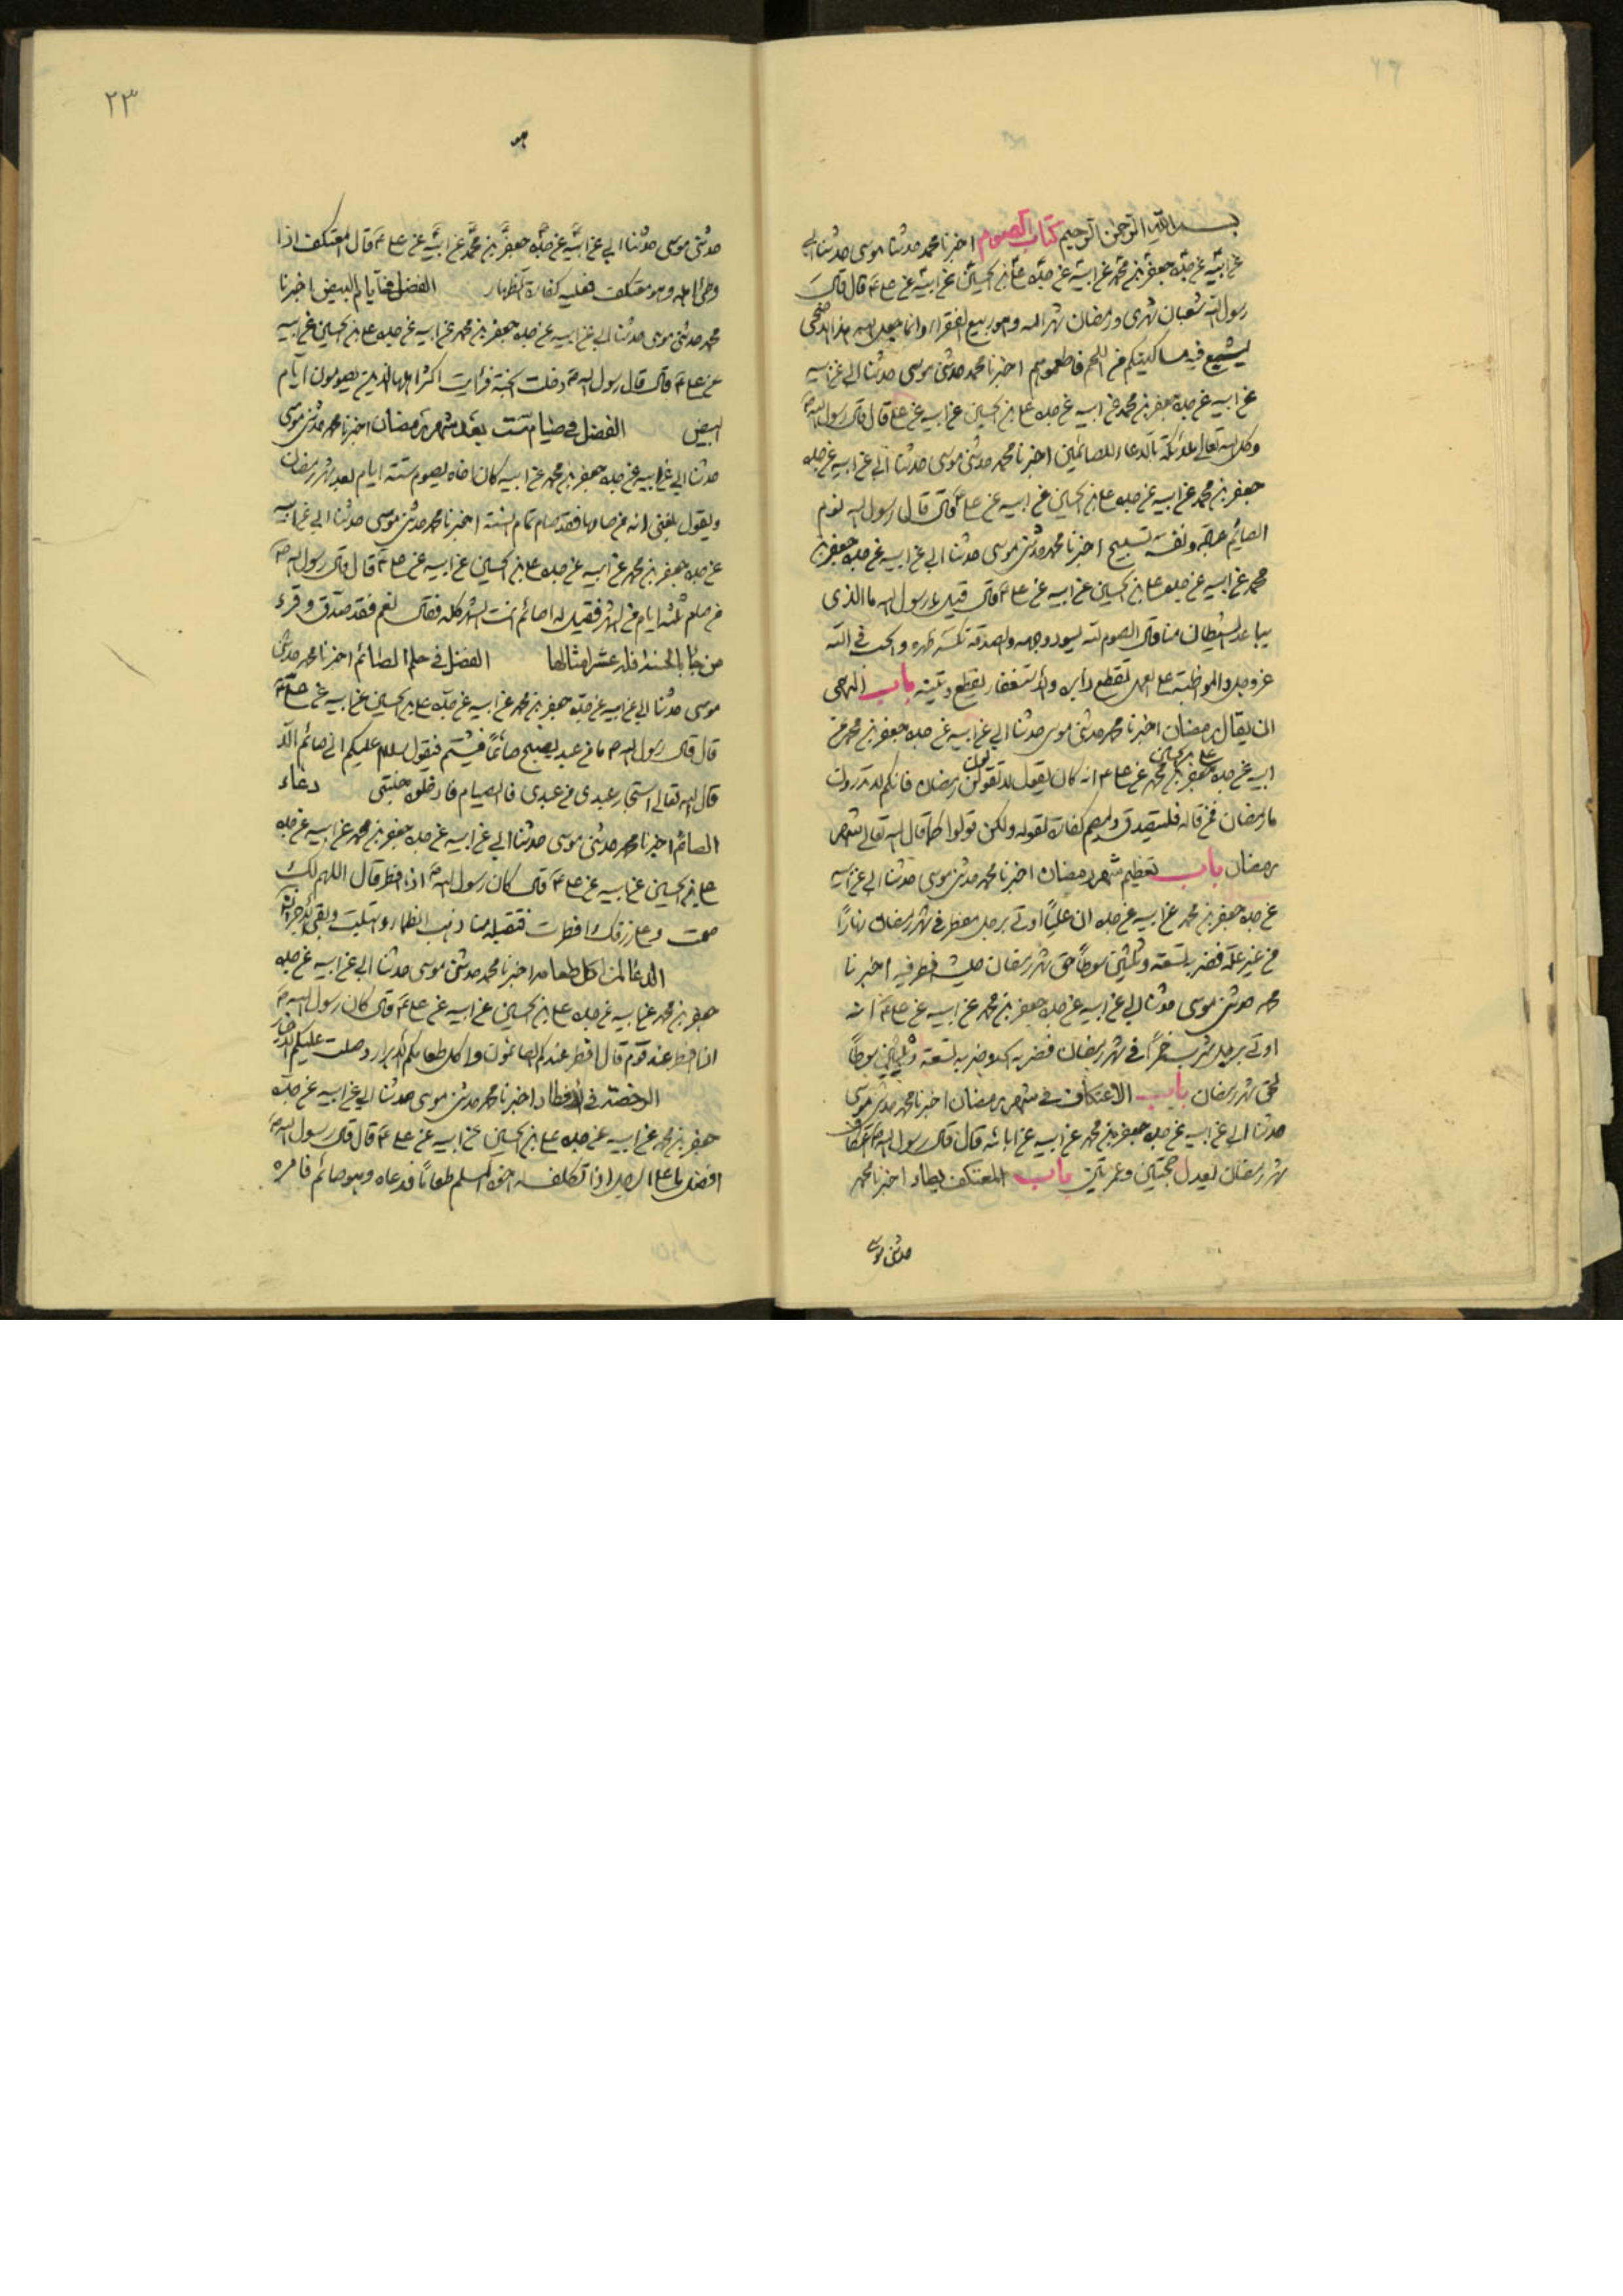 بسم الله الرحمن الرحیم کتاب الصوم اخبرنا محمد حدثنا موسی حدثنا ابی
عن ابیه عن جده جعفر بن محمد عن ابیه عن جده علی بن الحسین عن ابیه عن علی ع قال قال
رسول الله شعبان شهری و رمضان شهر الله وهو ربیع الفقراء وانما جعل الله هذا الاضحی
لیشبع فیه مساکینکم من اللحم فاطعموهم اخبرنا محمد حدثنی موسی حدثنا ابی عن ابیه
عن ابیه عن جده جعفر بن محمد عن ابیه عن جده علی بن الحسین عن ابیه عن علی قال قال رسول الله ص
وکل الله تعالی ملائکة بالدعاء للصائمین اخبرنا محمد حدثنی موسی حدثنا ابی عن ابیه عن جده
جعفر بن محمد عن ابیه عن جده علی بن الحسین عن ابیه عن علی ع قال قال رسول الله نوم
الصایم عبادة ونفسه تسبیح اخبرنا محمد حدثنی موسی حدثنا ابی عن ابیه عن جده جعفر بن
محمد عن ابیه عن جده علی بن الحسین عن ابیه عن علی ع قال قیل یا رسول الله ما الذی
یباعد الشیطان منا قال الصوم لله یسود وجهه والصدقة تکسر ظهره والحب فی الله
عز وجل والمواظبة علی العمل تقطع دابره والاستغفار یقطع وتینه باب النهی
ان یقال رمضان اخبرنا محمد حدثنی موسی حدثنا ابی عن ابیه عن جده جعفر بن محمد عن
ابیه عن جده علی بن الحسین عن علی ع انه کان یقول لا تقولن رمضان فانکم لا تدرون
ما رمضان فمن قاله فلیتصدق ولیصم کفارة لقوله ولکن قولوا کما قال الله تعالی شهر
رمضان باب تعظیم شهر رمضان اخبرنا محمد حدثنی موسی حدثنا ابی عن ابیه
عن جده جعفر بن محمد عن ابیه عن جده ان علیا اوتی برجل مفطر فی شهر رمضان نهارا
من غیر علة فضربه تسعة وثلثین سوطا حق شهر رمضان حیث افطر فیه اخبرنا
محمد حدثنی موسی حدثنا ابی عن ابیه عن جده جعفر بن محمد عن ابیه عن علی ع انه
اوتی برجل شرب خمرا فی شهر رمضان فضربه الحد وضربه تسعة وثلثین سوطا
لحق شهر رمضان باب الاعتکاف فی شهر رمضان اخبرنا محمد حدثنی موسی
حدثنا ابی عن ابیه عن جده جعفر بن محمد عن ابیه عن ابائه قال قال رسول الله ص اعتکاف
شهر رمضان یعدل حجتین وعمرتین باب المعتکف یطاء اخبرنا محمد
حدثنی موسی
٢٣
هو
حدثنی موسی حدثنا ابی عن ابیه عن جده جعفر بن محمد عن ابیه عن علی ع قال المعتکف اذا
وطی اهله وهو معتکف فعلیه کفارة الظهار الفضل فی ایام البیض اخبرنا
محمد حدثنی موسی حدثنا ابی عن ابیه عن جده جعفر بن محمد عن ابیه عن جده علی بن الحسین عن ابیه
عن علی ع قال قال رسول الله ص دخلت الجنة فرأیت اکثر اهلها الذین یصومون ایام
البیض الفضل فی صیام ست بعد شهر رمضان اخبرنا محمد حدثنی موسی
حدثنا ابی عن ابیه عن جده جعفر بن محمد عن ابیه کان اخاه یصوم ستة ایام بعد شهر رمضان
ویقول بلغنی انه من صامها فقد صام تمام السنة اخبرنا محمد حدثنی موسی حدثنا ابی عن ابیه
عن جده جعفر بن محمد عن ابیه عن جده علی بن الحسین عن ابیه عن علی ع قال قال رسول الله ص
من صام ثلثة ایام من الشهر فقیل له اصائم انت الشهر کله فقال نعم فقد صدق وقرء
من جاء بالحسنة فله عشر امثالها الفضل فی حلم الصائم اخبرنا محمد حدثنی
موسی حدثنا ابی عن ابیه عن جده جعفر بن محمد عن ابیه عن جده علی بن الحسین عن ابیه عن علی ع
قال قال رسول الله ص ما من عبد یصبح صائما فیشتم فیقول سلام علیکم انی صائم الا
قال الله تعالی استجار عبدی من عبدی فالصیام فادخلوه جنتی دعاء
الصائم اخبرنا محمد حدثنی موسی حدثنا ابی عن ابیه عن جده جعفر بن محمد عن ابیه عن جده
علی بن الحسین عن ابیه عن علی ع قال کان رسول الله ص اذا افطر قال اللهم لک
صمت وعلی رزقک افطرت فتقبله منا ذهب الظماء وابتلت وبقی الاجر انشاء
الدعا لمن اکل طعامه اخبرنا محمد حدثنی موسی حدثنا ابی عن ابیه عن جده
جعفر بن محمد عن ابیه عن جده علی بن الحسین عن ابیه عن علی ع قال کان رسول الله ص
اذا افطر عند قوم قال افطر عندکم الصائمون واکل طعامکم الابرار وصلت علیکم الاخیار
الرخصة فی الافطار اخبرنا محمد حدثنی موسی حدثنا ابی عن ابیه عن جده
جعفر بن محمد عن ابیه عن جده علی بن الحسین عن ابیه عن علی ع قال قال رسول الله ص
افضل ما علی الرجل اذا تکلف له اخوه المسلم طعاما فدعاه وهو صائم فامره